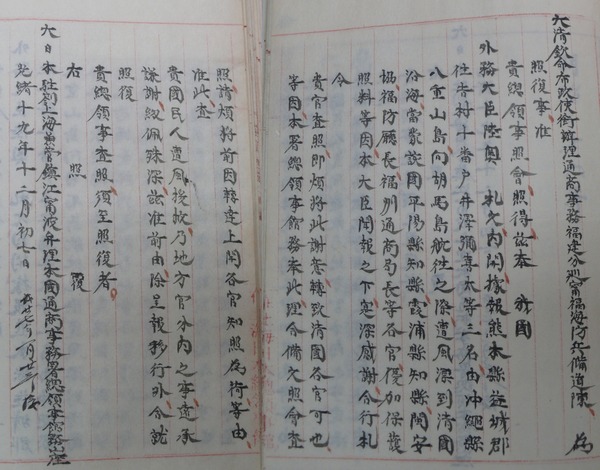 大清欽命布政使銜辦理通商事務福建分巡甯福海防兵備道陳　為
照復事准
貴總領事照會照得玆奉　我國
外務大臣陸奧　札文內開據報熊本縣
住吉村十番戶井深彌壽太等三名由沖繩縣
八重山島向胡馬島航往之際遭風漂到清國
沿海當蒙該國平陽縣知縣霞浦縣知縣閩安
協福防廳長福州通商局長等各官優加保護
照料等因本大臣閱報之下寔深感謝合行札
令
貴官查照即煩將此謝意轉致清國各官可也
等因本署總領事館務奉此理合備文照會查
照請煩將前因轉達上開各官知照為荷等由
准此查
貴國民人遭風後救乃地方官分內之事遠承
謙謝紉佩殊深玆准前由除呈報移行外合就
照復
貴總領事查照須至照復者
右　照　復
大日本駐劄上海兼管鎮江甯波辦理本國通商事務署總領事館務
光緒十九年十二月初七日